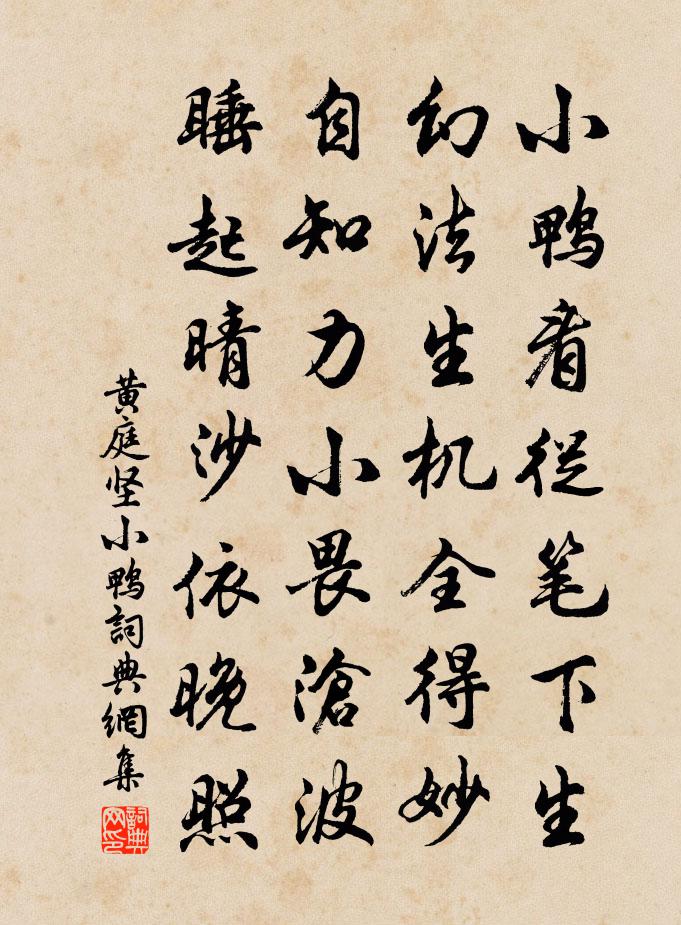 小鸭看从笔下生
幻法生机全得妙
自知力小畏滄波
睡起晴沙依晚照
黄庭坚小鸭詞典網集
詞典
网印